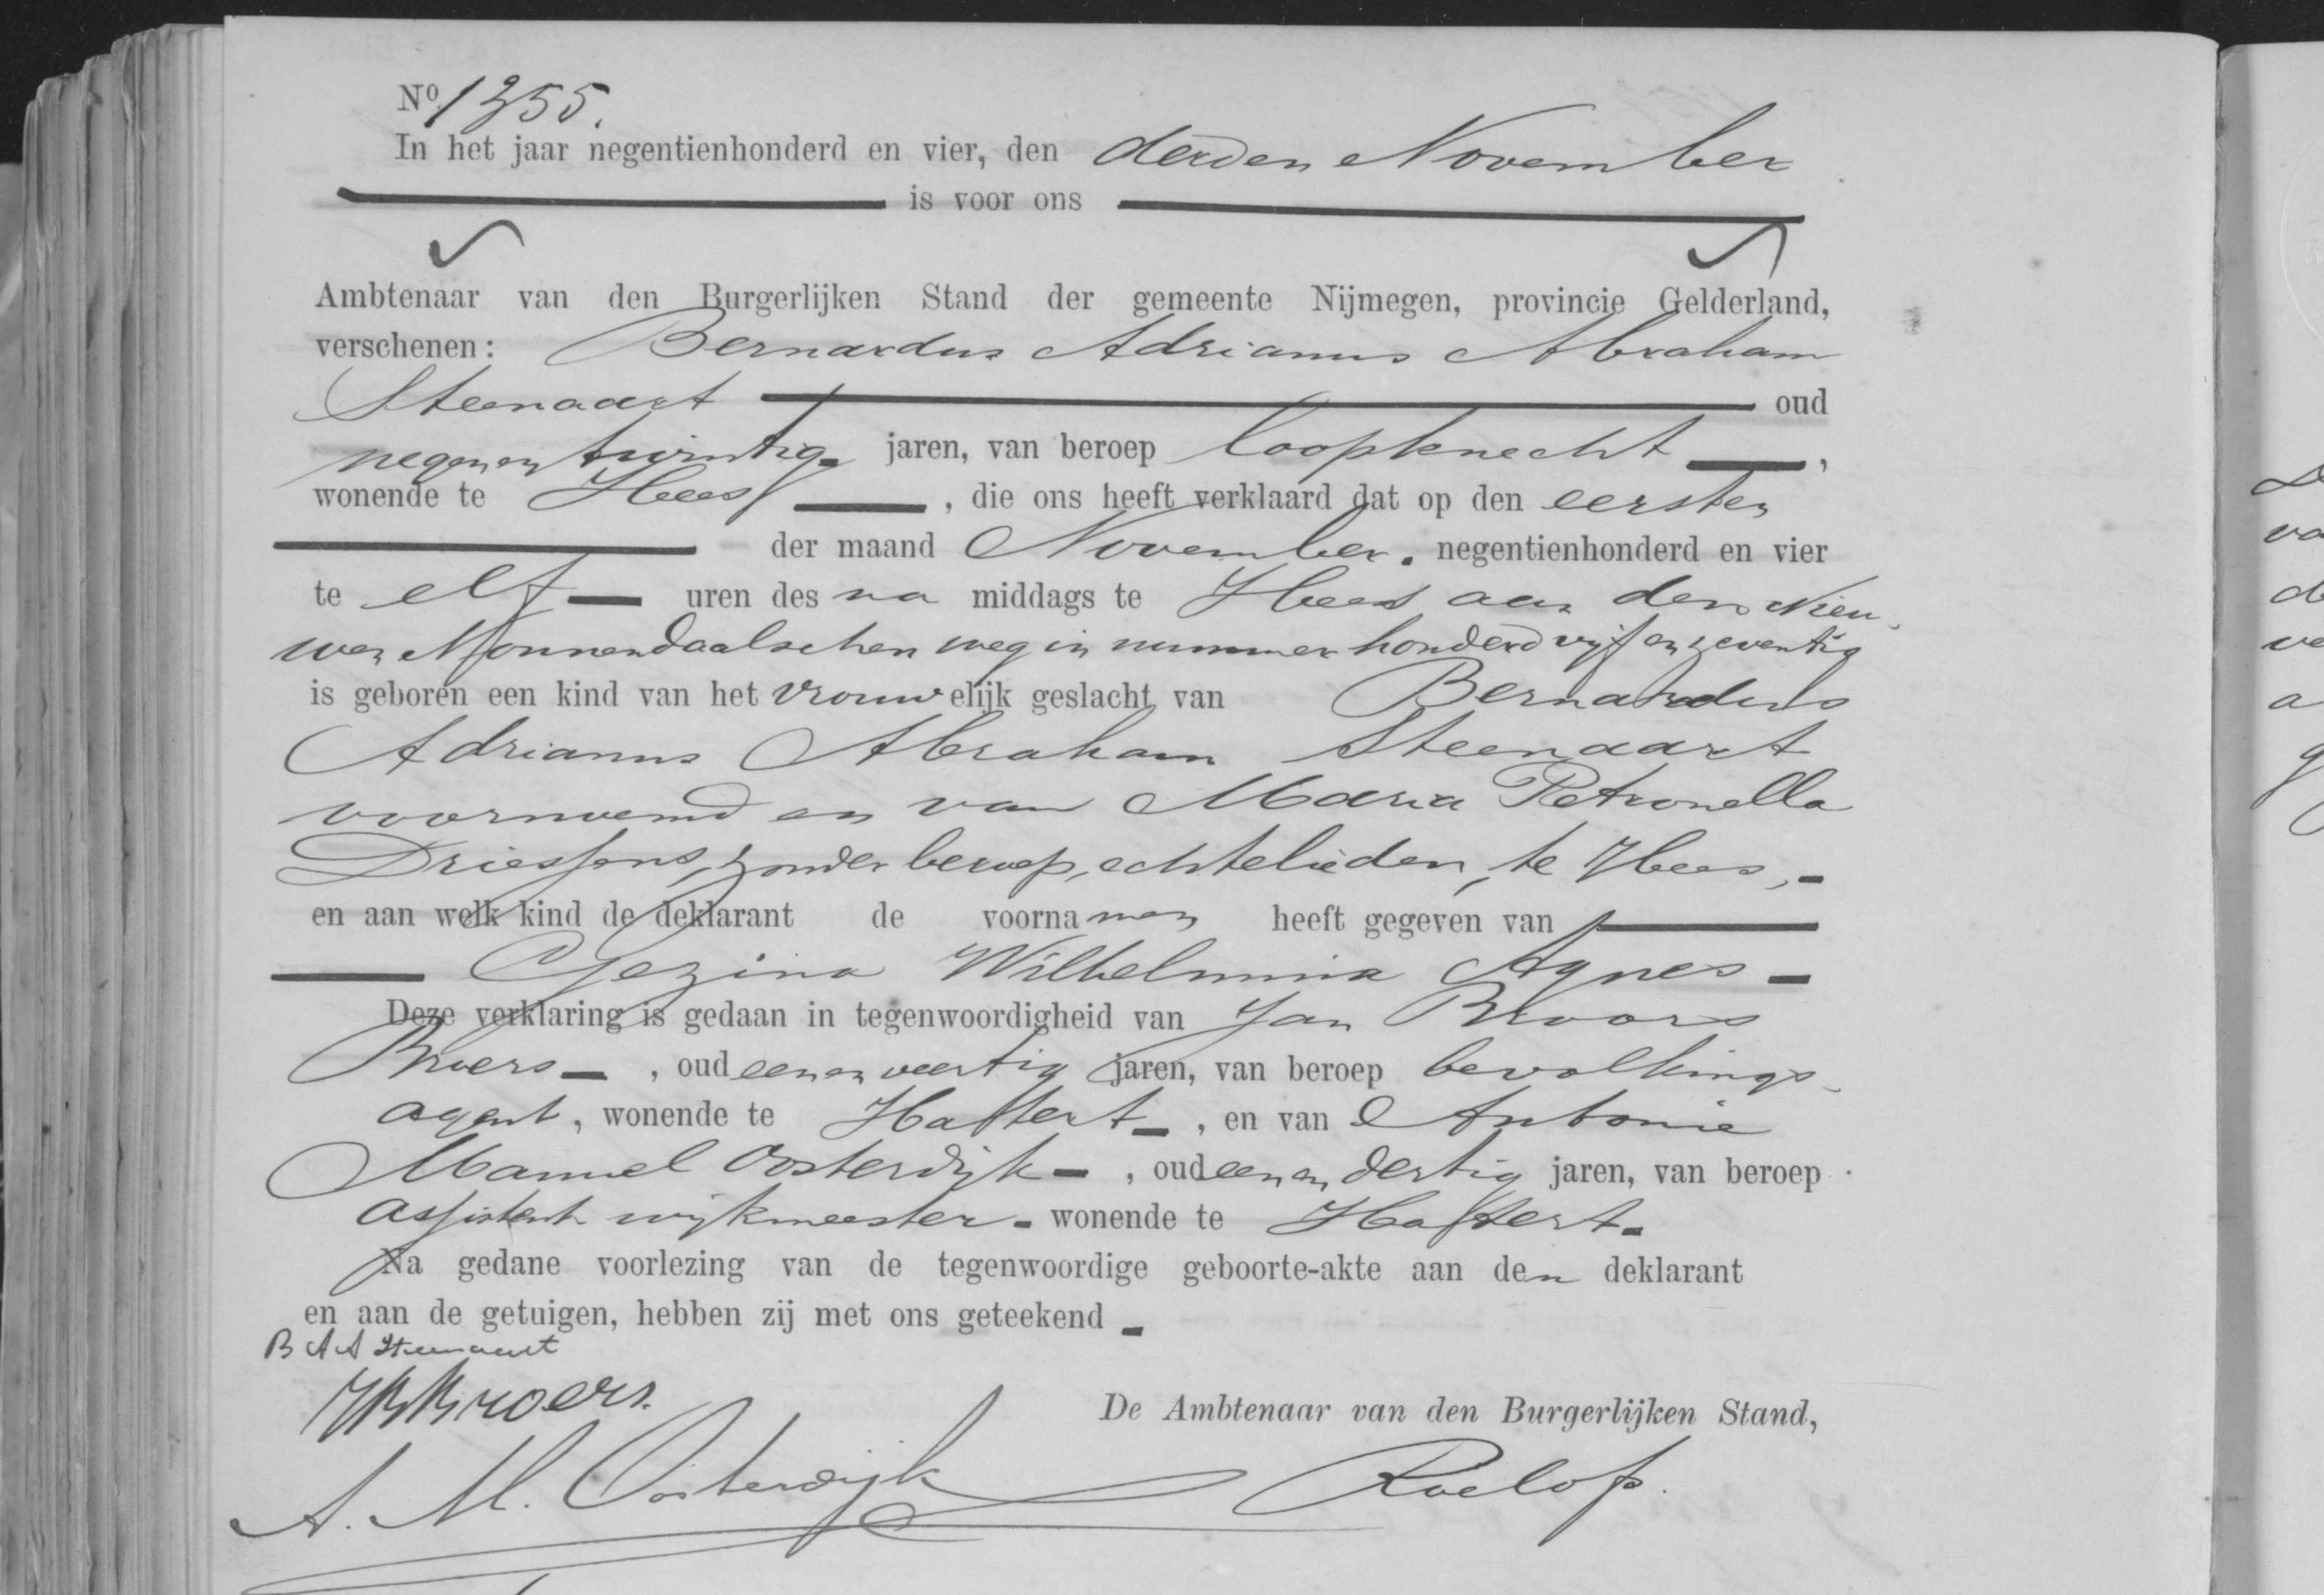 Nº 1355.
In het jaar negentienhonderd en vier, den derden November
is voor ons
Ambtenaar van den Burgerlijken Stand der gemeente Nijmegen, provincie Gelderland,
verschenen: Bernardus Adrianus Abraham
Steenaart oud
negenen twintig jaren, van beroep loopknecht,
wonende te Hees, die ons heeft verklaard dat op den eersten
der maand November. negentienhonderd en vier
te elf uren des na middags te Hees aan den Nieu-
wen Nonnendaalschen weg in nummer honderd vijf en zeventig
is geboren een kind van het vrouwelijk geslacht van Bernardus
Adrianus Abraham Steenaart
voornoemd en van Maria Petronella
Driessens, zonder beroep, echtelieden, te Hees,
en aan welk kind de deklarant de voornamen heeft gegeven van
Gezina Wilhelmina Agnes
Deze verklaring is gedaan in tegenwoordigheid van Jan
Broers, oud eenen veertig jaren, van beroep bevolkings-
agent, wonende te Hattert, en van Antonie
Manuel Oosterdijk, oud eenen dertig jaren, van beroep
assistent wijkmeester wonende te Hattert.
Na gedane voorlezing van de tegenwoordige geboorte-akte aan den deklarant
en aan de getuigen, hebben zij met ons geteekend
B A A Steenaart
Broers.
De Ambtenaar van den Burgerlijken Stand,
A. M. Oosterdijk
Roelofs.